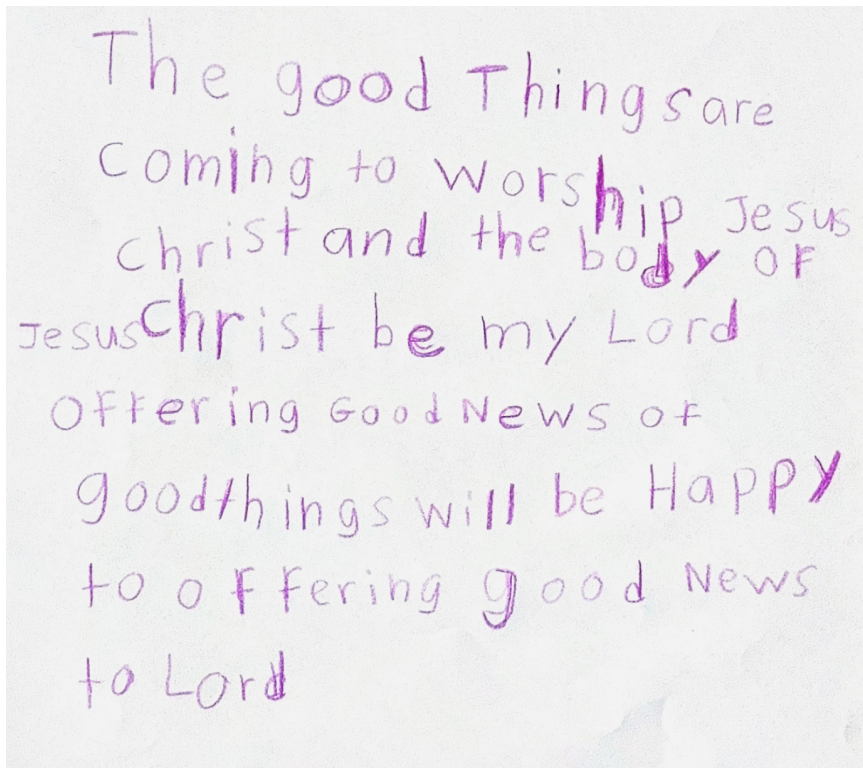 The good Things are
coming to worship Jesus
christ and the body of
Jesus Christ be my Lord
offering Good News of
good things will be Happy
to offering good News
to Lord